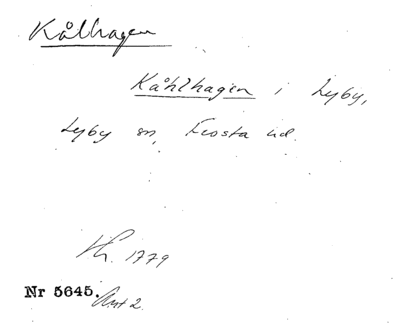 Kålhagen
Kåhlhagen i Lyby,
Lyby sn, Frosta hd.
1779
Nr 5645. Akt 2.